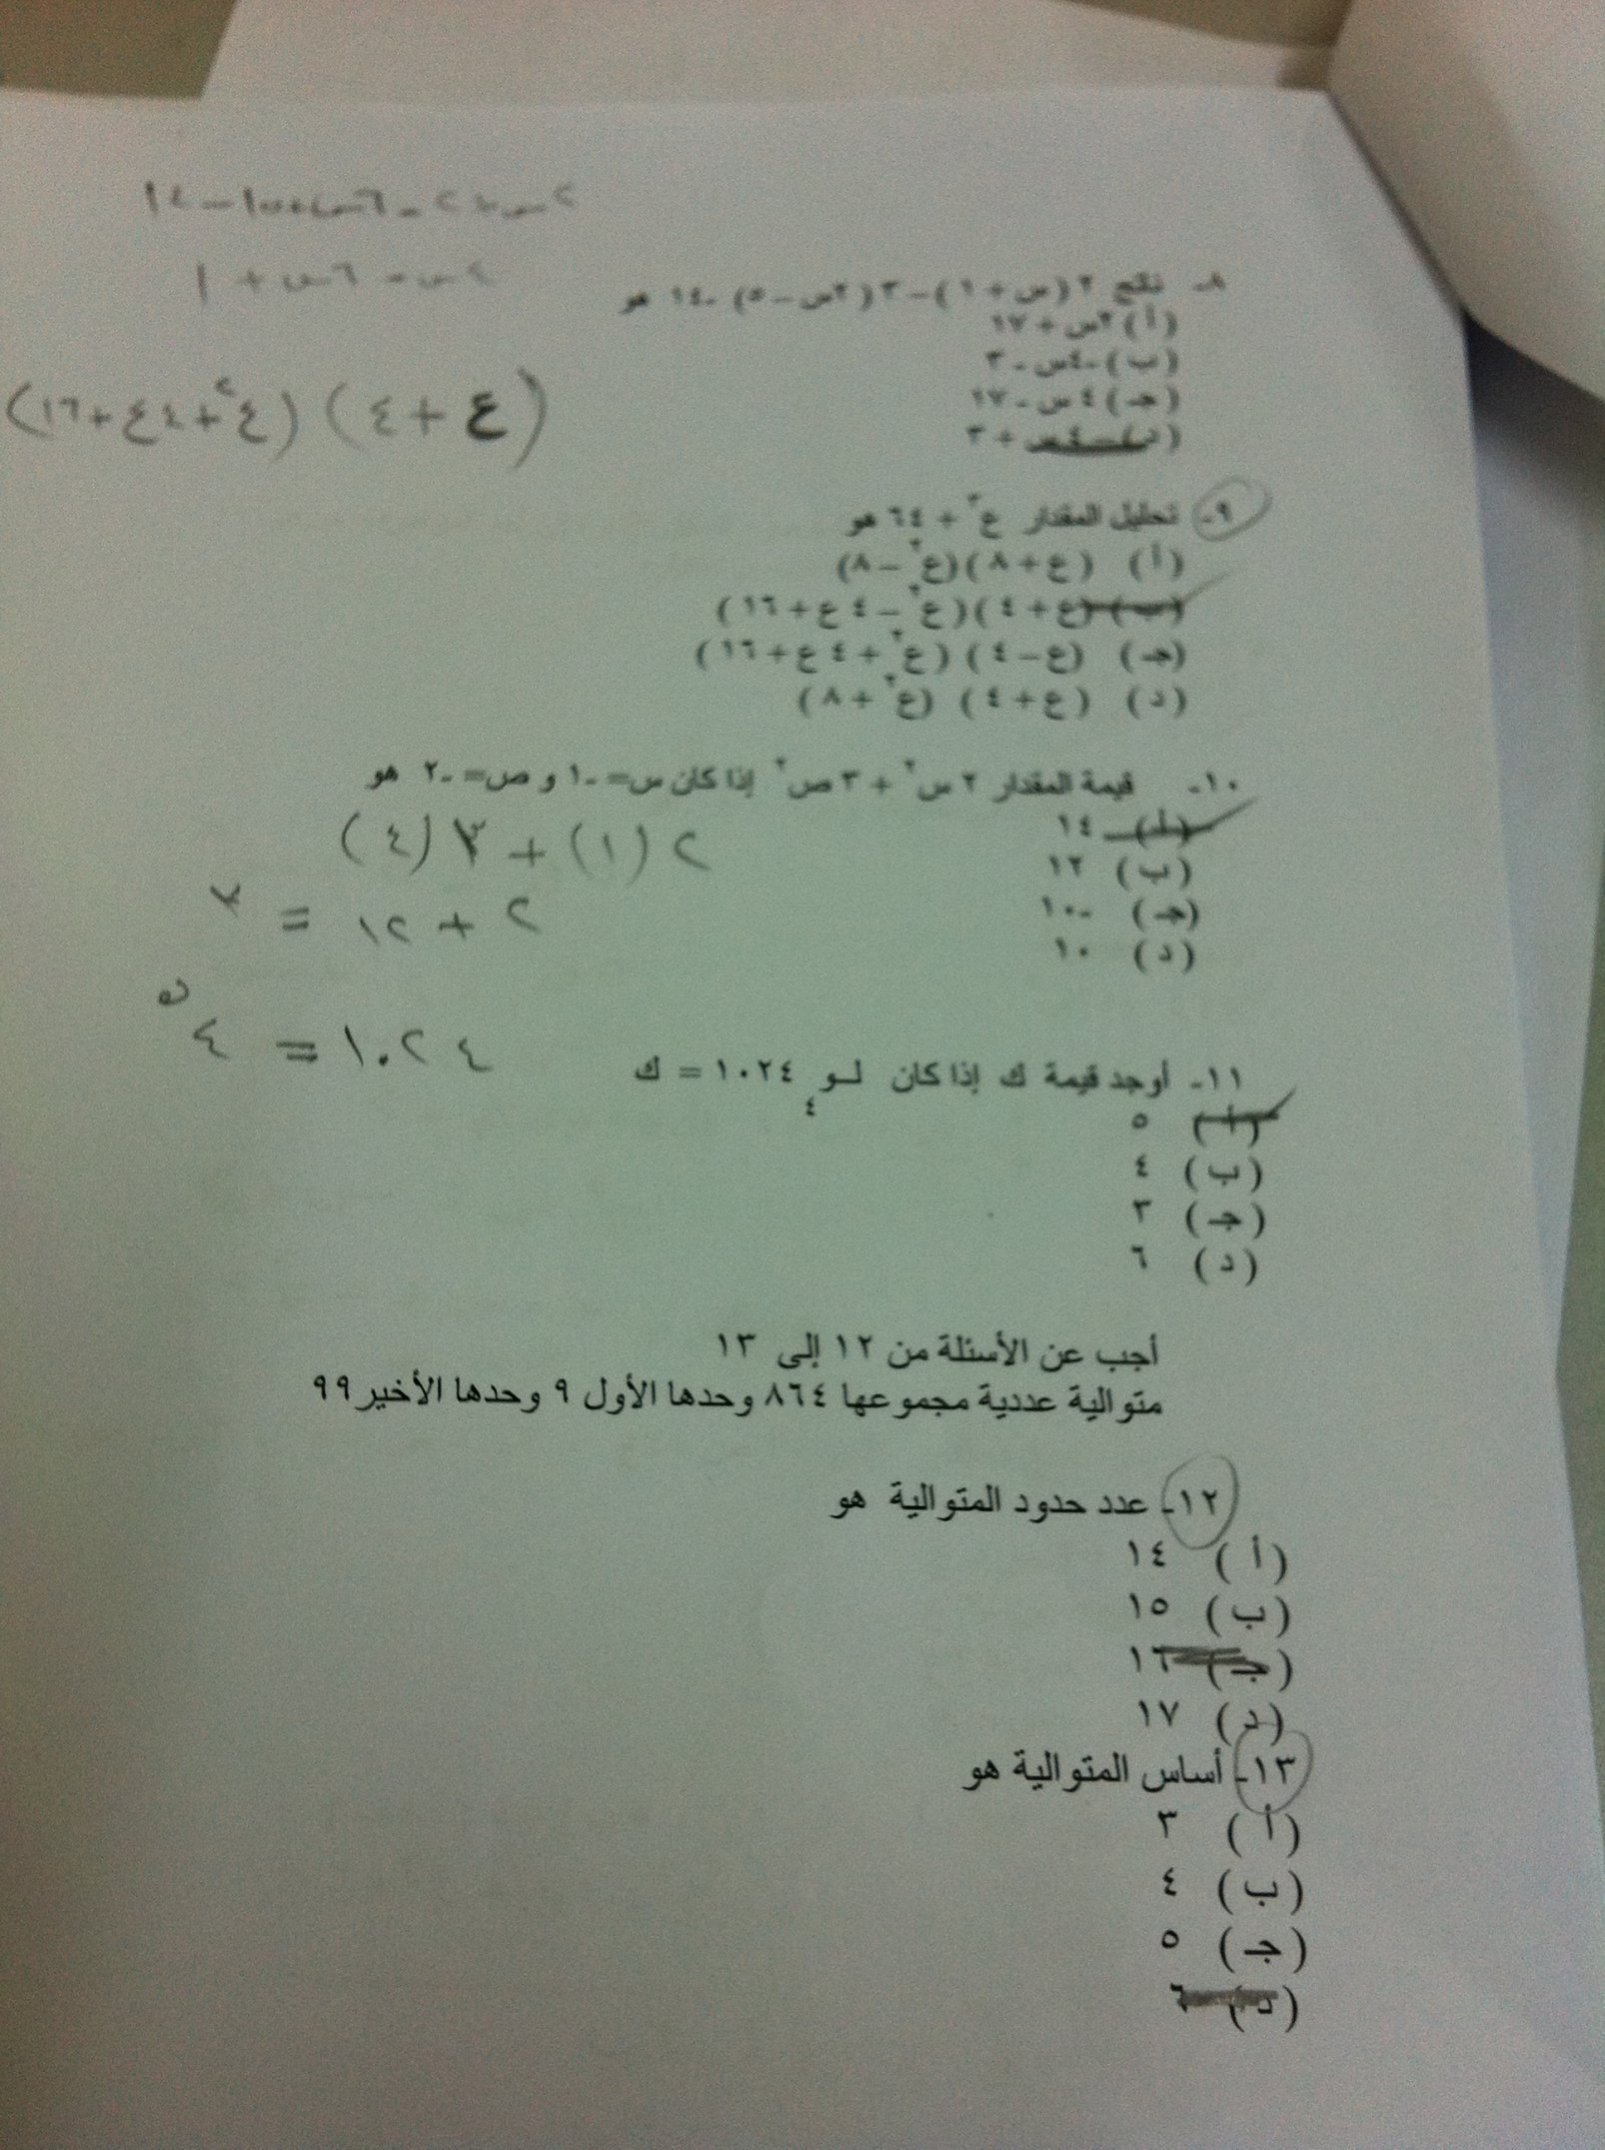 ٨- ناتج ٢(س+١)-٣(٢س-٥)-١٤ هو
(أ) ٢س+١٧
(ب) -٤س-٣
(جـ) ٤س-١٧
(د) -٤س+٣
(ع+٤)(ع٢+٤ع+١٦)
٩- تحليل المقدار ع٣+٦٤ هو
(أ) (ع+٨)(ع٢-٨)
(ب) (ع+٤)(ع٢-٤ع+١٦)
(جـ) (ع-٤)(ع٢+٤ع+١٦)
(د) (ع+٤)(ع٢+٨)
١٠- قيمة المقدار ٢س٢+٣ص٢ إذا كان س=-١ و ص=-٢ هو
(أ) ١٤
٢(١)+٣(٤)
(ب) ١٢
(جـ) -١٠
٢+١٢=
(د) ١٠
١٠٢٤=٤
١١- أوجد قيمة ك إذا كان لـو٤ ١٠٢٤ = ك
(أ) ٥
(ب) ٤
(جـ) ٣
(د) ٦
أجب عن الأسئلة من ١٢ إلى ١٣
متوالية عددية مجموعها ٨٦٤ وحدها الأول ٩ وحدها الأخير ٩٩
١٢- عدد حدود المتوالية هو
(أ) ١٤
(ب) ١٥
(جـ) ١٦
(د) ١٧
١٣- أساس المتوالية هو
(أ) ٣
(ب) ٤
(جـ) ٥
(د) ٦